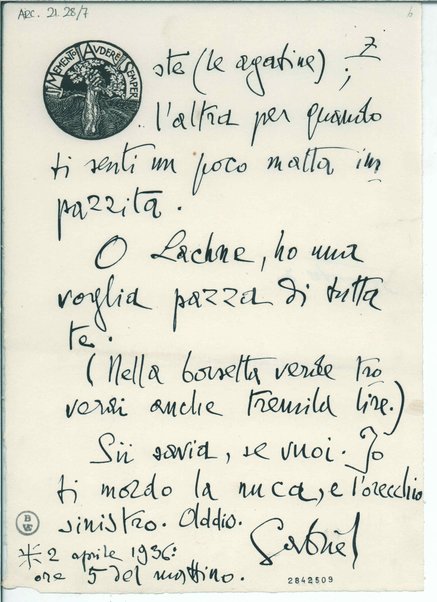 ARC. 21. 28/7
6
7
MEMENTO AVDERE SEMPER
ste (le agatine) ;
l'altra per quando
ti senti un poco matta im
pazzita.
O Lachne, ho una
voglia pazza di tutta
te.
(Nella borsetta verde tro
verai anche tremila lire.)
Sii savia, se vuoi. Io
ti mordo la nuca, e l'orecchio
sinistro. Addio.
Gabriel
* 2 aprile 1936:
ore 5 del mattino.
2842509